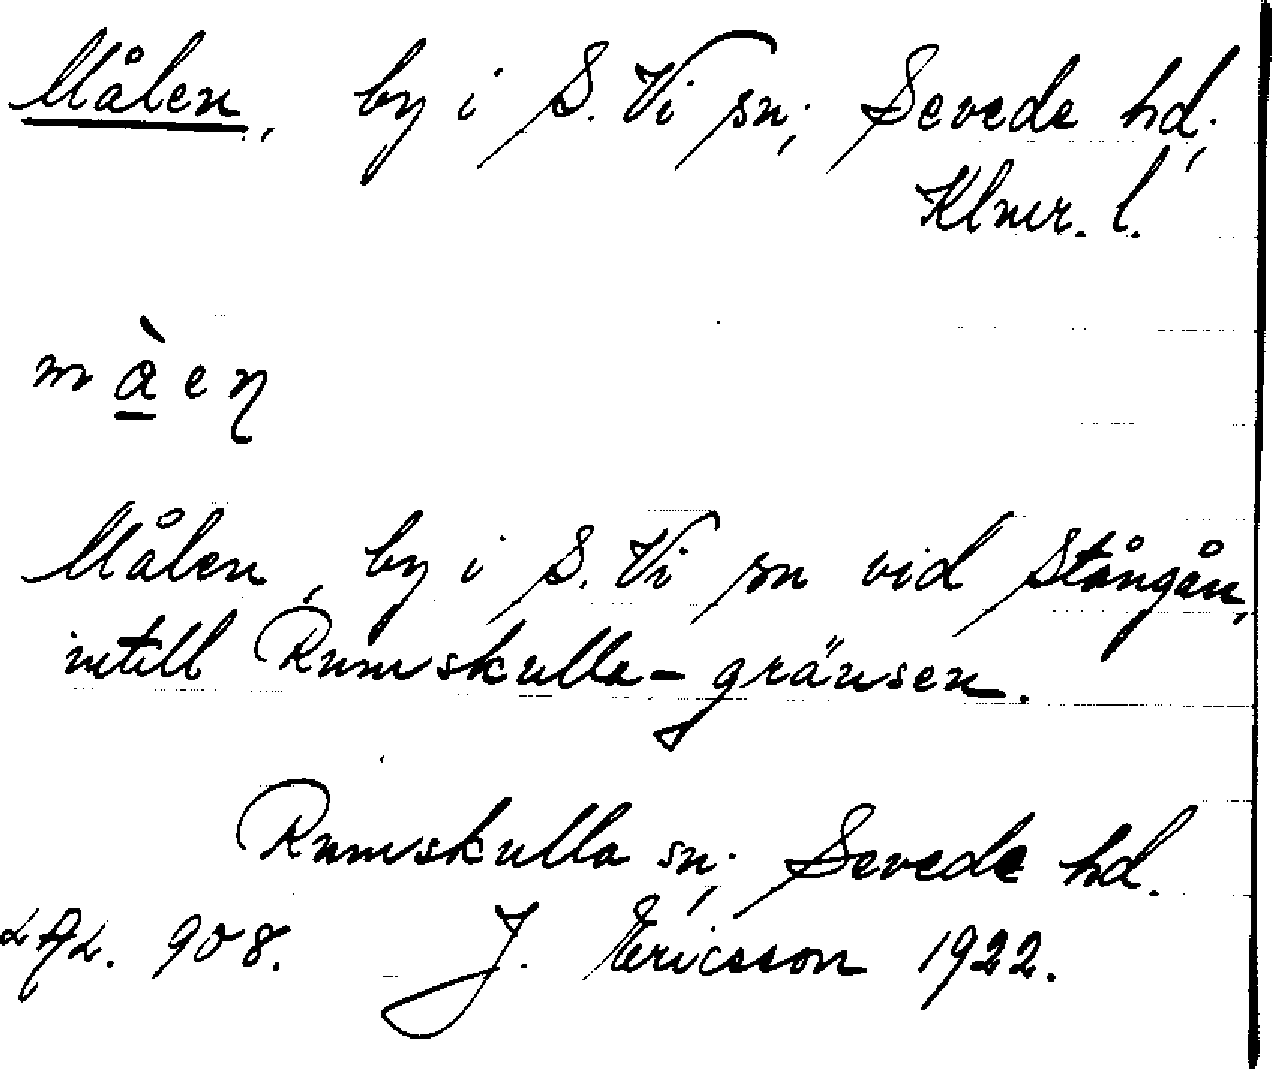 Målen, by i S. Vi sn; Sevede hd;
Klmr. l.
m à e ŋ
Målen, by i S. Vi sn vid Stångån,
intill Rumskulla-gränsen.
Rumskulla sn; Sevede hd.
908. J. Ericsson 1922.